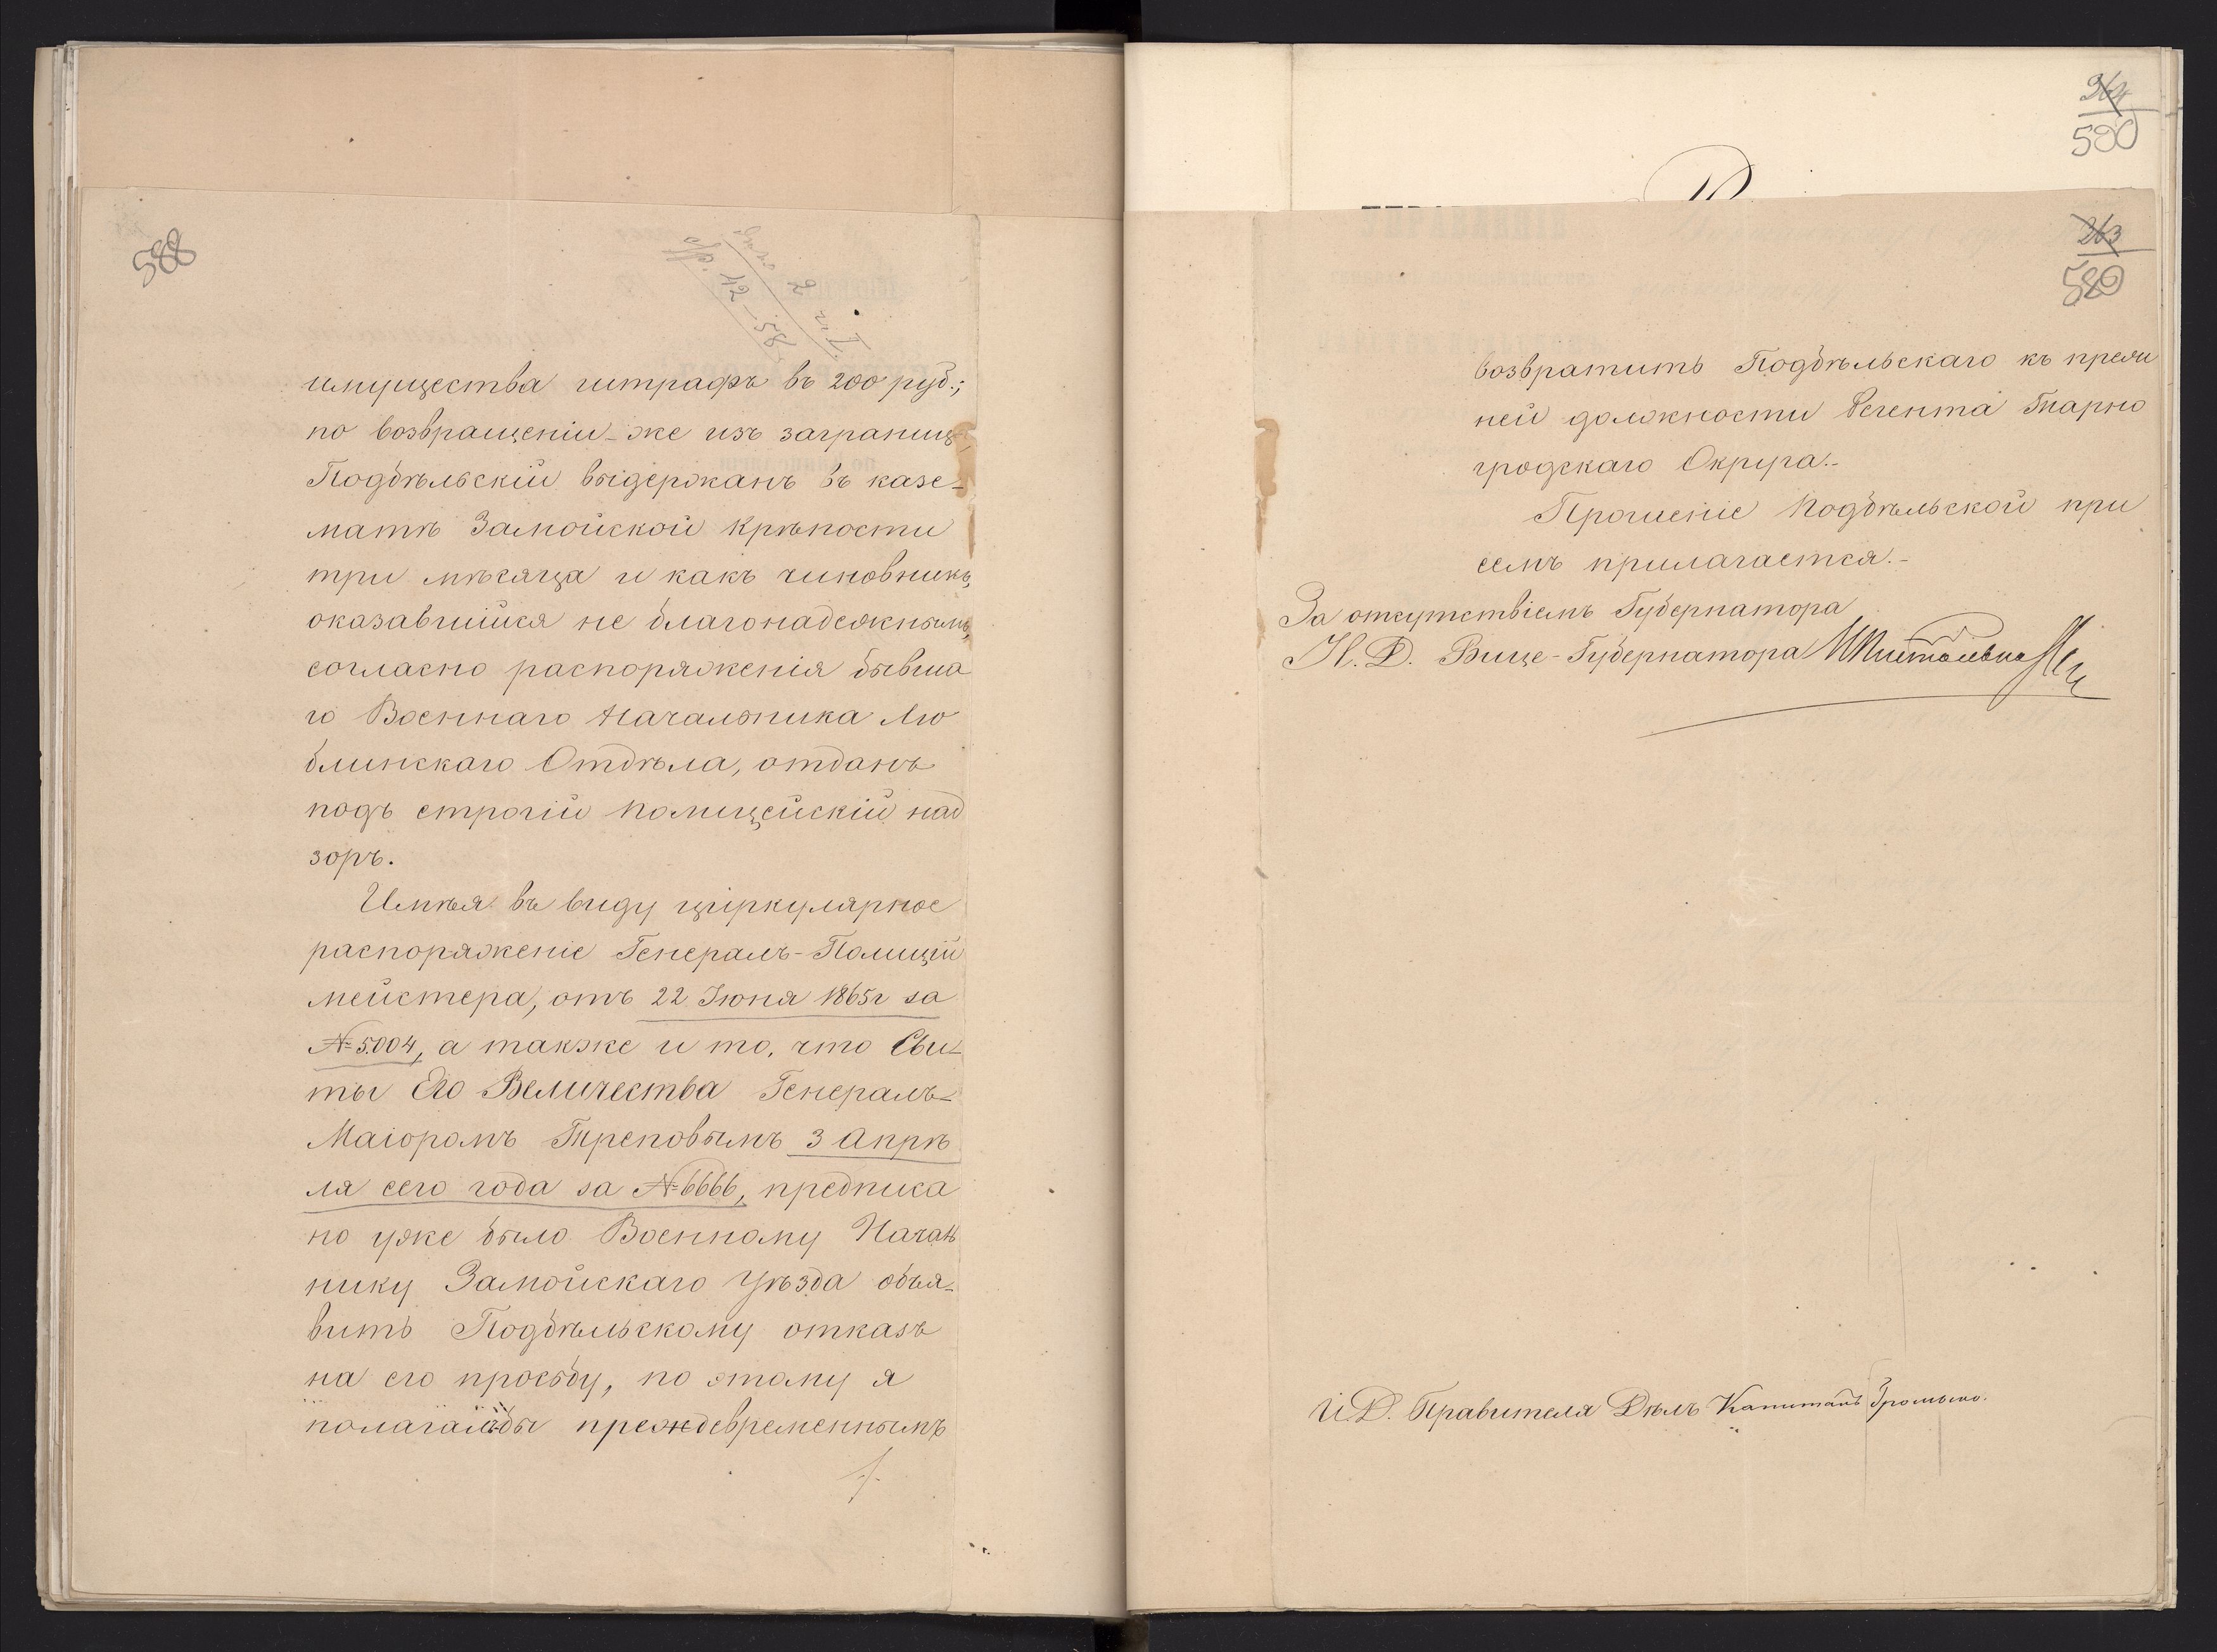 588
имущества штрафъ въ 200 руб.;
по возвращеніи-же изъ заграницы
Подбѣльскій выдержанъ въ казе-
матѣ Замойской крѣпости
три мѣсяца и какъ чиновникъ,
оказавшійся не благонадежнымъ,
согласно распоряженія бывша
го Военнаго Начальника Лю
блинскаго Отдѣла, отданъ
подъ строгій полицейскій над
зоръ.
Имѣя въ виду циркулярное
распоряженіе Генералъ-Полиціи
мейстера, отъ 22 Іюня 1865г за
№ 5.004, а также и то, что Сви-
ты Его Величества Генералъ-
Маіоромъ Треповымъ 3 Апрѣ
ля сего года за № 6666, предписа
но уже было Военному Началь
нику Замойскаго Уѣзда объя-
вить Подбѣльскому отказъ
на его просьбу, по этому я
полагалъ бы преждевременнымъ
./.
364
590
263
589
возвратить Подбѣльскаго къ преж
ней должности Регента Тарно
гродскаго Округа.-
Прошеніе Подбѣльской при
семъ прилагается.-
За отсутствіемъ Губернатора
И. Д. Вице-Губернатора
И. Д. Правителя Дѣлъ Капитанъ